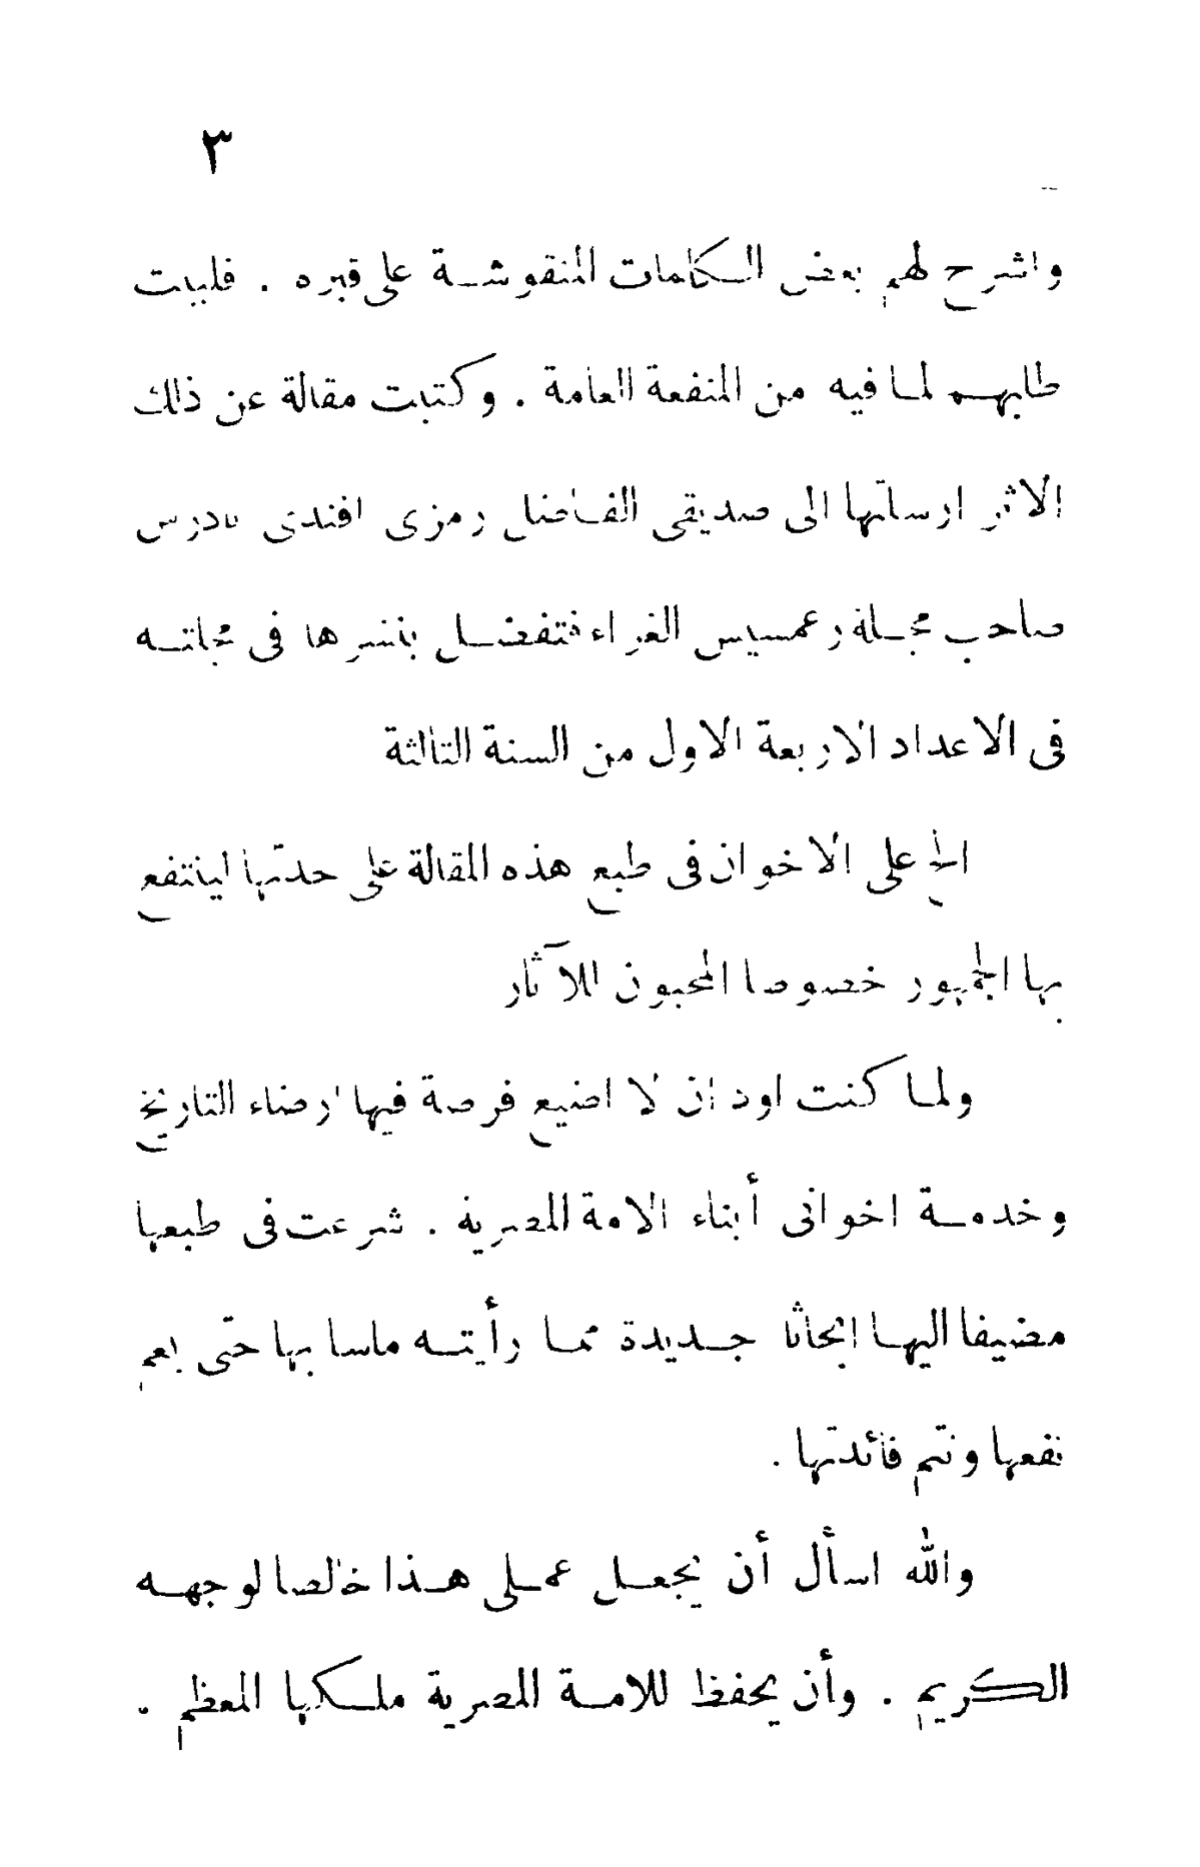 ٣
واشرح لهم بعض الكلمات المنقوشة على قبره . فلبيت
طلبهم لما فيه من المنفعة العامة . وكتبت مقالة عن ذلك
الاثر ارسلتها الى صديقى الفاضل رمزى افندى تادرس
صاحب مجلة رعمسيس الغراء فتفضل بنشرها فى مجلته
فى الاعداد الاربعة الاول من السنة الثالثة
الح على الاخوان فى طبع هذه المقالة على حدتها لينتفع
بها الجمهور خصوصا المحبون للآثار
ولما كنت اود ان لا اضيع فرصة فيها ارضاء التاريخ
وخدمة اخوانى أبناء الامة المصرية . شرعت فى طبعها
مضيفا اليها ابحاثا جديدة مما رأيته ماسا بها حتى يعم
نفعها وتتم فائدتها .
والله اسأل أن يجعل عملى هذا خالصا لوجهه
الكريم . وأن يحفظ للامة المصرية ملكها المعظم .